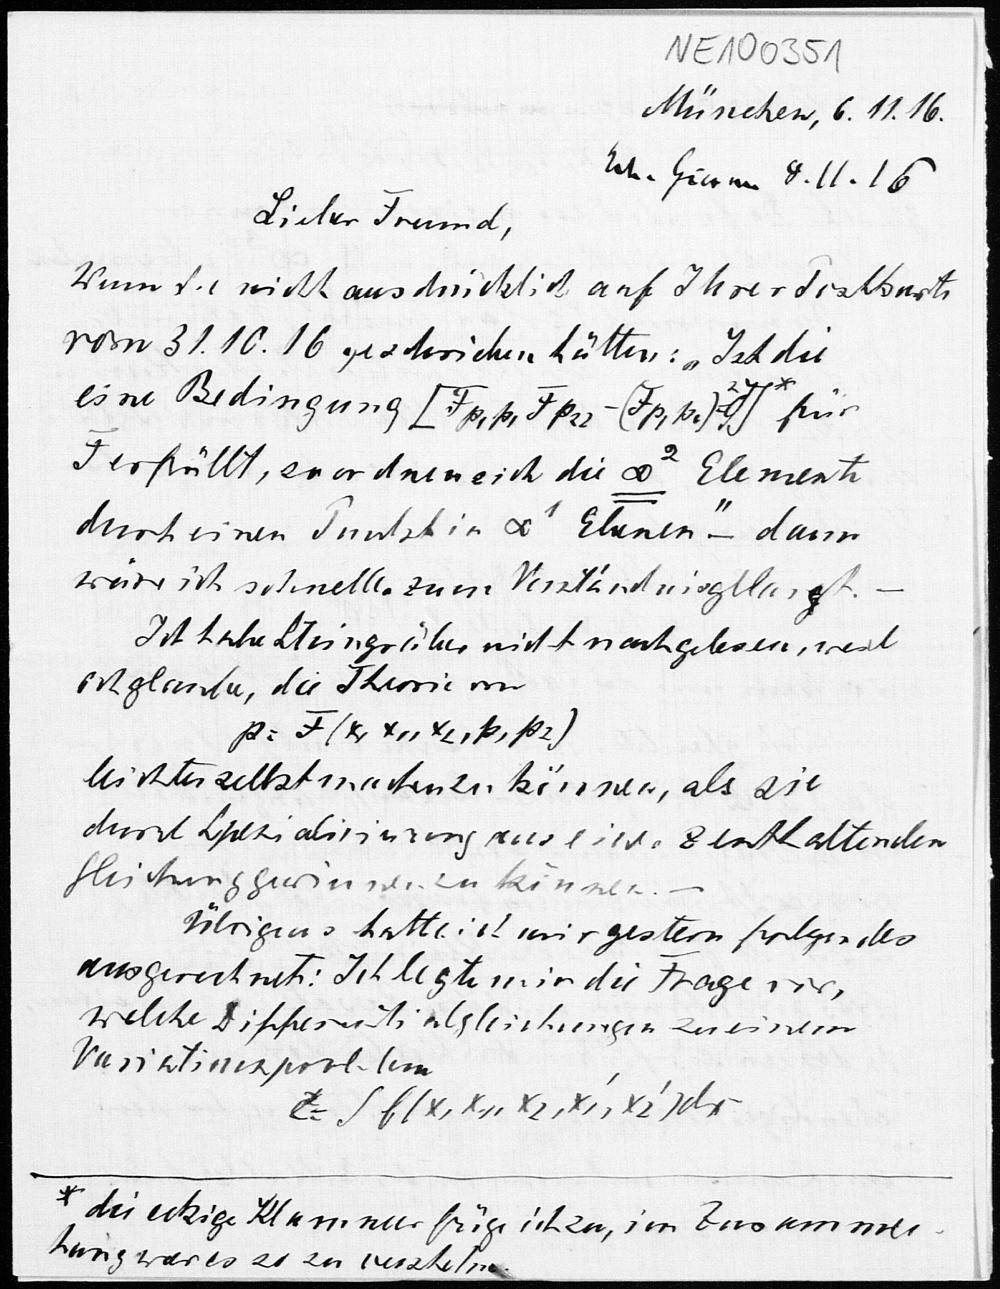 NE100351
München, 6. 11. 16.
8.11.16
Lieber Freund,
Wenn Sie nicht ausdrücklich auf Ihrer Postkarte
vom 31.10.16 geschrieben hätten: „Ist die
eine Bedingung [F_{p_1p_1} F_{p_2p_2} - (F_{p_1p_2})^2]* für
F erfüllt, so ordnen sich die ∞² Elemente
durch einen Punkt in ∞¹ Ebenen" – dann
wäre ich schneller zum Verständnis gelangt. –
Ich habe nicht nachgelesen, weil
ich glaube, die Theorie von
p = F(x, x_1, x_2, p_1, p_2)
leichter selbst machen zu können, als sie
durch Spezialisierung aus einer z enthaltenden
Gleichung gewinnen zu können. –
Übrigens hatte ich mir gestern folgendes
ausgerechnet: Ich legte mir die Frage vor,
welche Differentialgleichungen zu einem
Variationsproblem
z = ∫ f(x, x_1, x_2, x_1', x_2') dx
* die eckige Klammer füge ich zu, im Zusammen-
hang war es so zu verstehen.